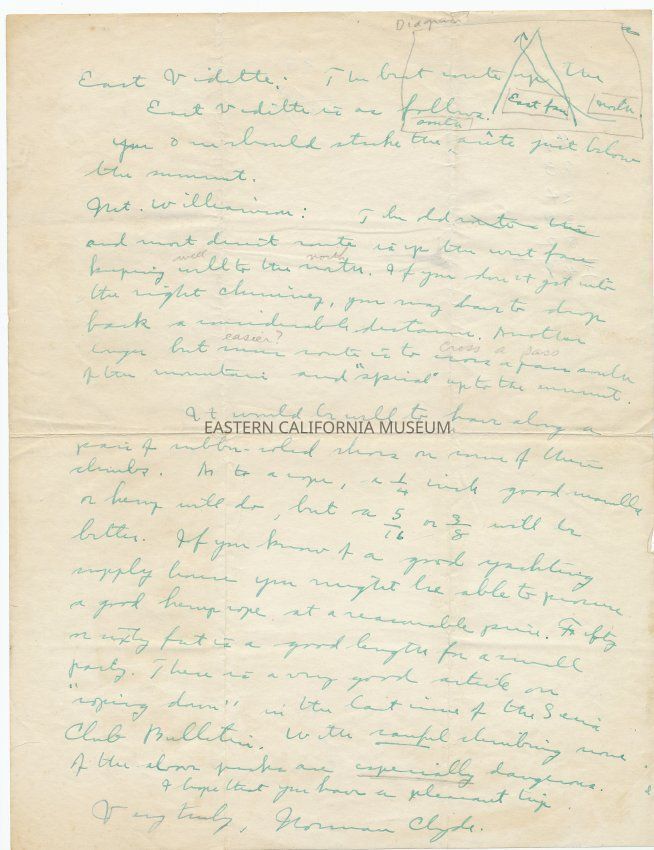 Diagram
East Vidette: The best route up the
East Vidette is as follows.
East face
north
south
you one should strike the arête just below
the summit.
Mt. Williamson: The old route is the
and most direct route is up the west face
well north
keeping well to the north. If you don't get into
the right chimney, you may have to drop
back a considerable distance. Another
easier? cross a pass
longer but route is to cross a pass south
of the mountain and "spiral" up to the summit.
It would be well to have along a
EASTERN CALIFORNIA MUSEUM
pair of rubber-soled shoes on some of these
climbs. As to a rope, a 1/4 inch good manilla
or hemp will do, but a 5/16 or 3/8 will be
better. If you know of a good yachting
supply house you might be able to procure
a good hemp rope at a reasonable price. Fifty
or sixty feet is a good length for a small
party. There is a very good article on
"roping down" in the last issue of the Sierra
Club Bulletin. With careful climbing none
of the above peaks are especially dangerous.
I hope that you have a pleasant trip.
Very truly, Norman Clyde.